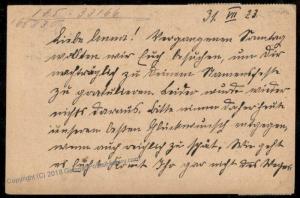 105-33166
31. VII 23.
Liebe Anna! Vergangenen Sonntag
wollten wir Euch besuchen, um Dir
nachträglich zu Deinem Namensfeste
zu gratulieren. Leider wurde wieder
nichts daraus. Bitte nimm daher heute
unseren besten Glückwunsch entgegen,
wenn auch reichlich zu spät. Wie geht
es Euch Ihr gar nicht des